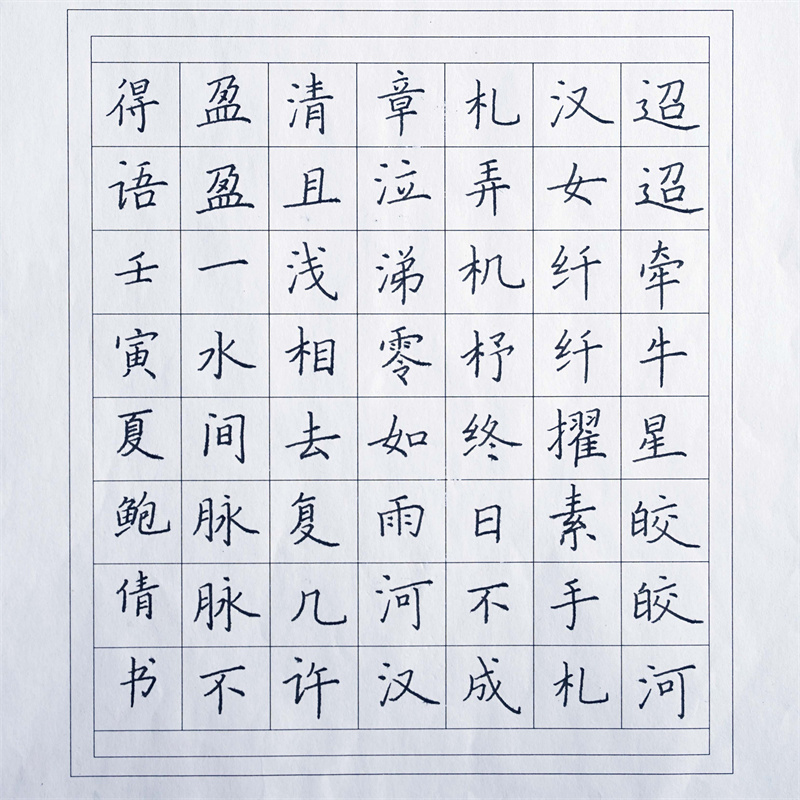 迢迢牵牛星皎皎河
汉女纤纤擢素手札
札弄机杼终日不成
章泣涕零如雨河汉
清且浅相去复几许
盈盈一水间脉脉不
得语壬寅夏鲍倩书